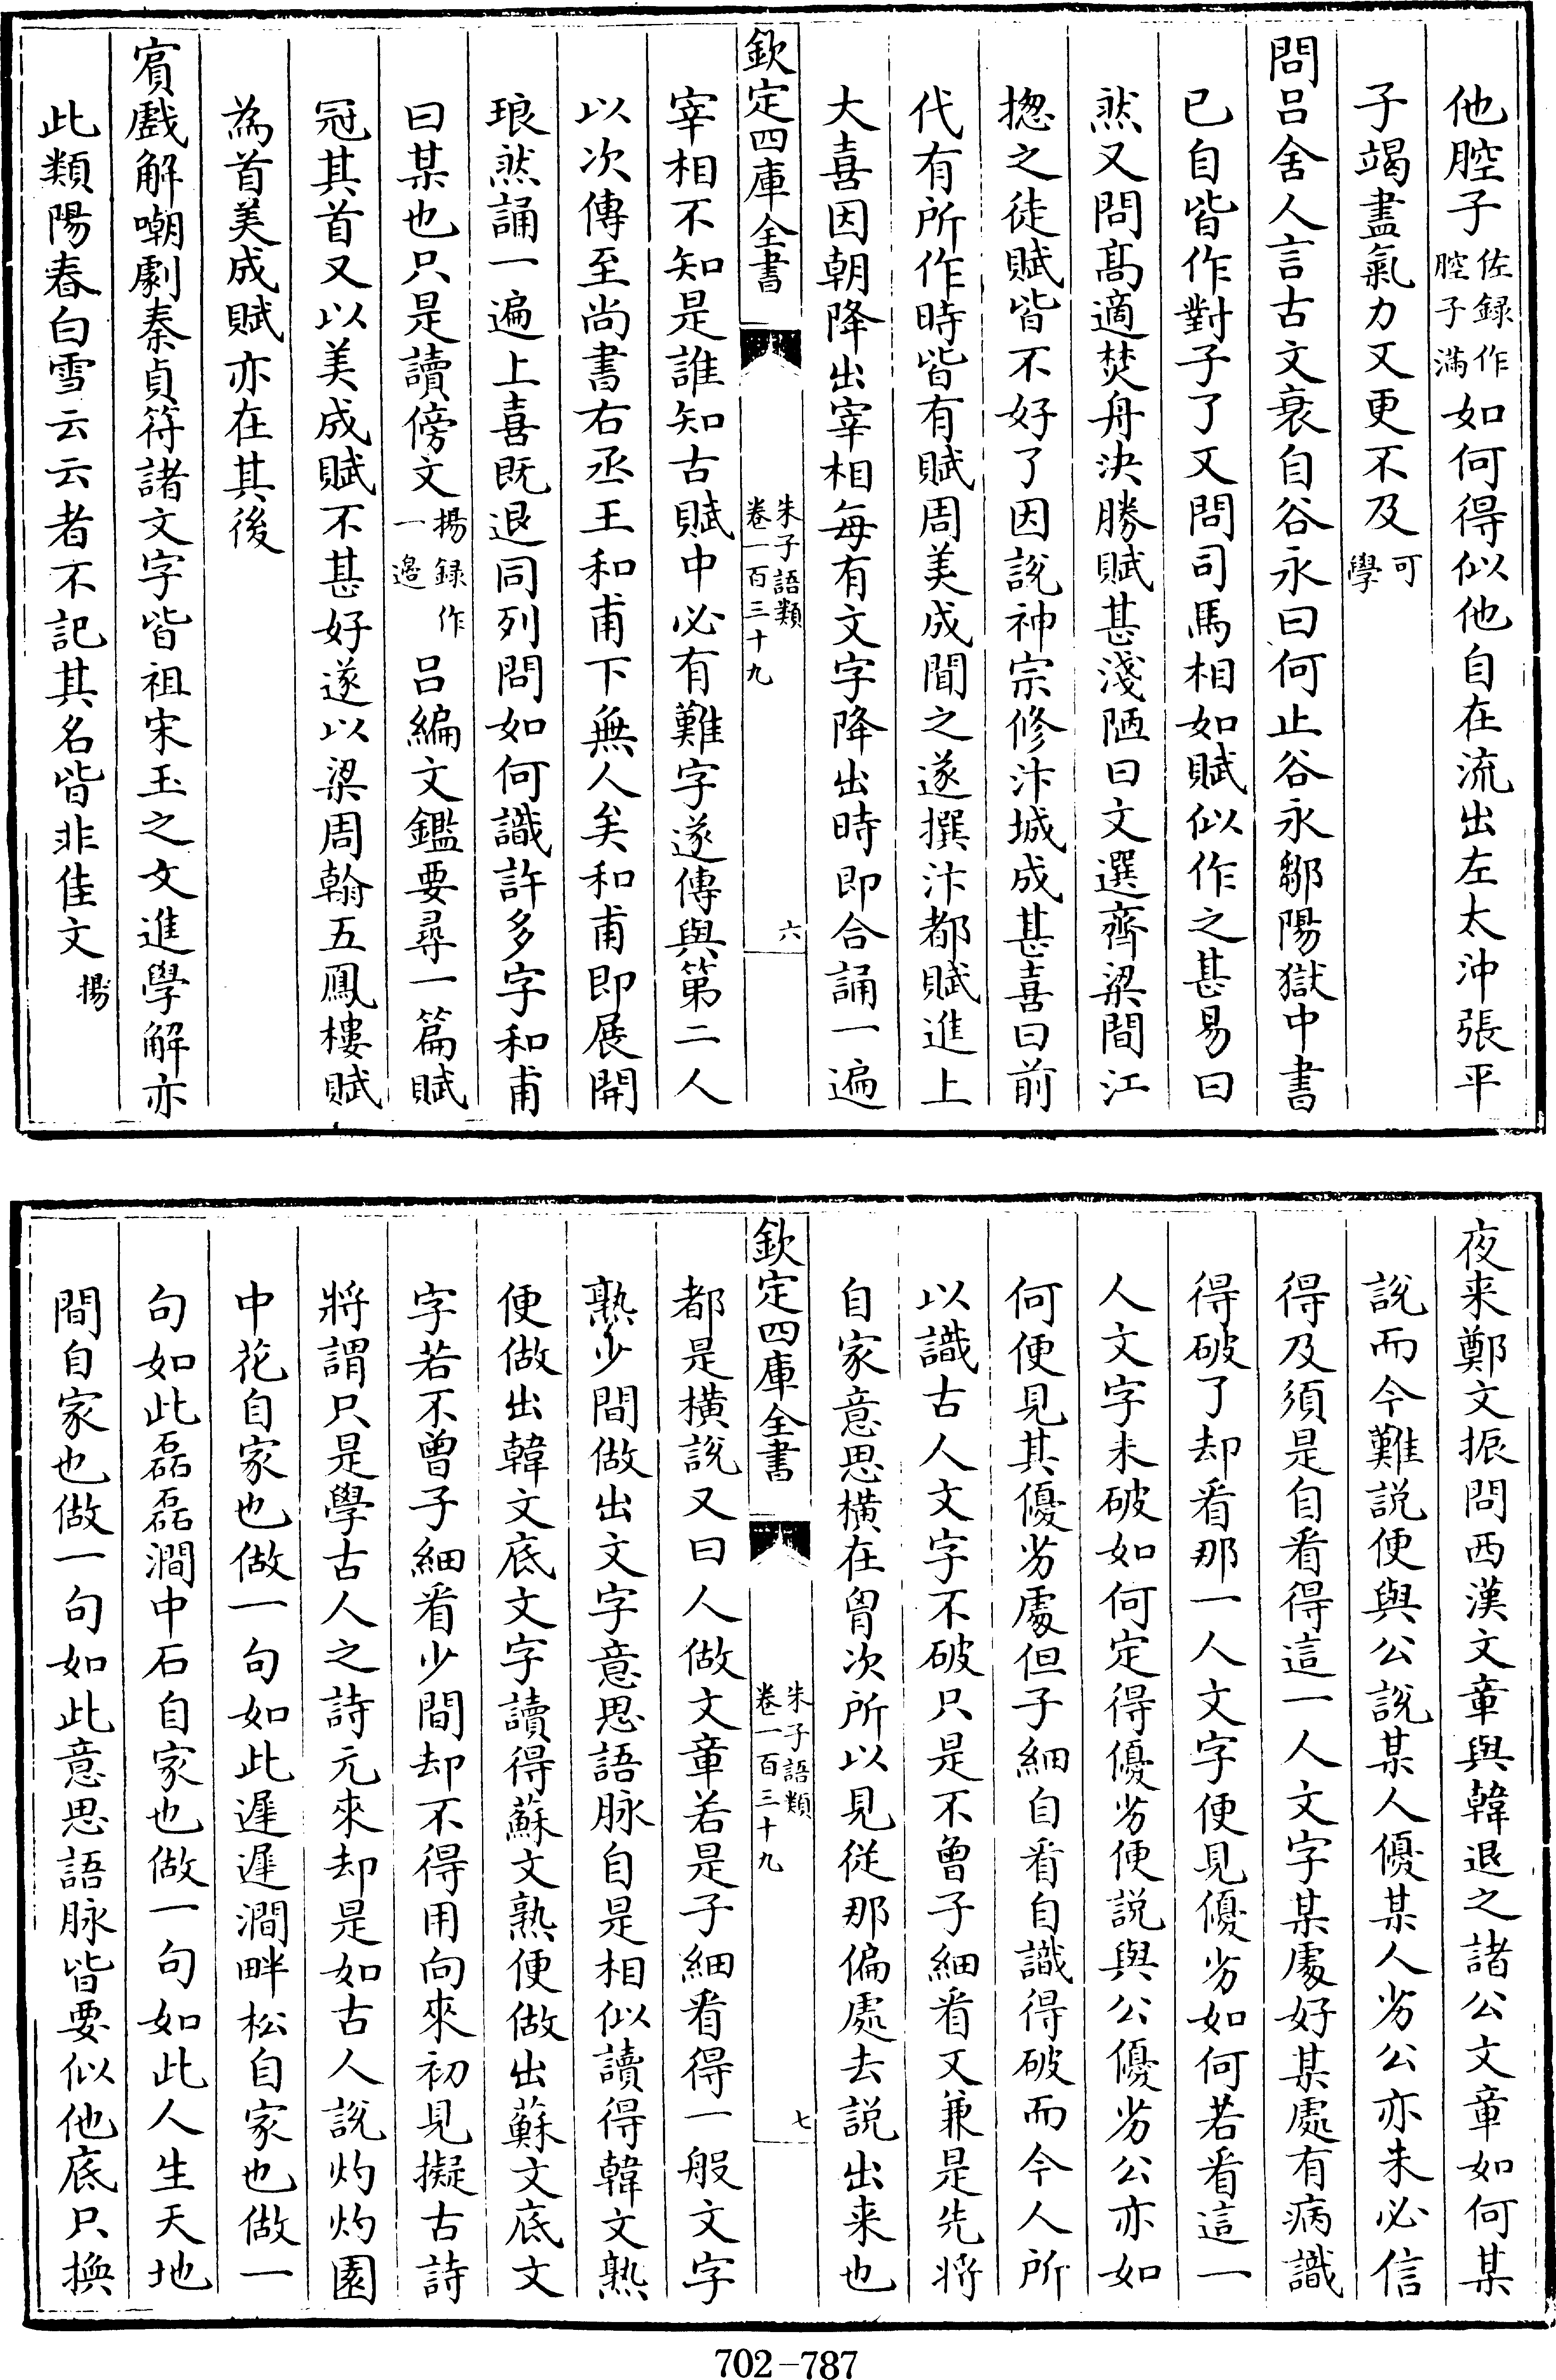 他腔子佐録作腔子滿如何得似他自在流出左太冲張平
子竭盡氣力又更不及可學
問吕舍人言古文衰自谷永曰何止谷永鄒陽獄中書
已自皆作對子了又問司馬相如賦似作之甚易曰
然又問髙適焚舟決勝賦甚淺陋曰文選齊梁間江
揔之徒賦皆不好了因說神宗修汴城成甚喜曰前
代有所作時皆有賦周美成聞之遂撰汴都賦進上
大喜因朝降出宰相每有文字降出時即合誦一遍
欽定四庫全書 朱子語類卷一百三十九 六
宰相不知是誰知古賦中必有難字遂傳與第二人
以次傳至尚書右丞王和甫下無人矣和甫即展開
琅然誦一遍上喜既退同列問如何識許多字和甫
曰某也只是讀傍文揚録作一邉吕編文鑑要尋一篇賦
冠其首又以美成賦不甚好遂以梁周翰五鳳樓賦
為首美成賦亦在其後
賔戲解嘲劇秦貞符諸文字皆祖宋玉之文進學解亦
此類陽春白雪云云者不記其名皆非佳文揚
夜来鄭文振問西漢文章與韓退之諸公文章如何某
說而今難説便與公説某人優某人劣公亦未必信
得及須是自看得這一人文字某處好某處有病識
得破了却看那一人文字便見優劣如何若看這一
人文字未破如何定得優劣便説與公優劣公亦如
何便見其優劣處但子細自看自識得破而今人所
以識古人文字不破只是不曾子細看又兼是先將
自家意思橫在胷次所以見從那偏處去説出来也
欽定四庫全書 朱子語類卷一百三十九 七
都是橫說又曰人做文章若是子細看得一般文字
熟少間做出文字意思語脉自是相似讀得韓文熟
便做出韓文底文字讀得蘇文熟便做出蘇文底文
字若不曾子細看少間却不得用向來初見擬古詩
將謂只是學古人之詩元來却是如古人說灼灼園
中花自家也做一句如此遲遲澗畔松自家也做一
句如此磊磊澗中石自家也做一句如此人生天地
間自家也做一句如此意思語脉皆要似他底只換
702-787